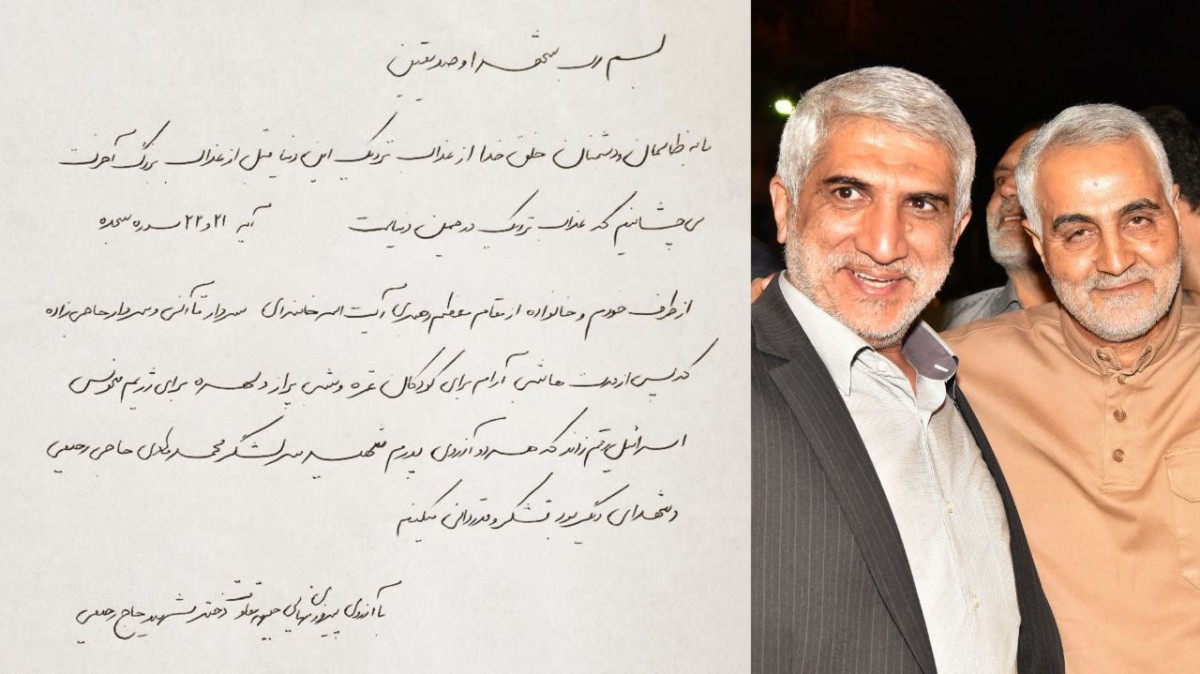 بسم رب الشهدا و صدیقین
ما به ظالمان و دشمنان خلق خدا از عذاب نزدیک این دنیا قبل از عذاب بزرگ آخرت
می چشانیم که عذاب نزدیک در همین دنیاست آیه ۲۱ و ۲۲ سوره سجده
از طرف خودم و خانواده از مقام معظم رهبری آیت الله خامنه ای سردار قاآنی و سردار حاجی زاده
که پس از مدت ها شبی آرام برای کودکان غزه و شبی پر از دلهره برای رژیم منحوس
اسرائیل رقم زدند که هر دو آرزوی پدرم شهید سرلشگر محمد هادی حاجی رحیمی
و شهدای دیگر بود تشکر و قدردانی میکنیم
با آرزوی پیروزی نهایی جبهه مقاومت دختر شهید حاج رحیمی